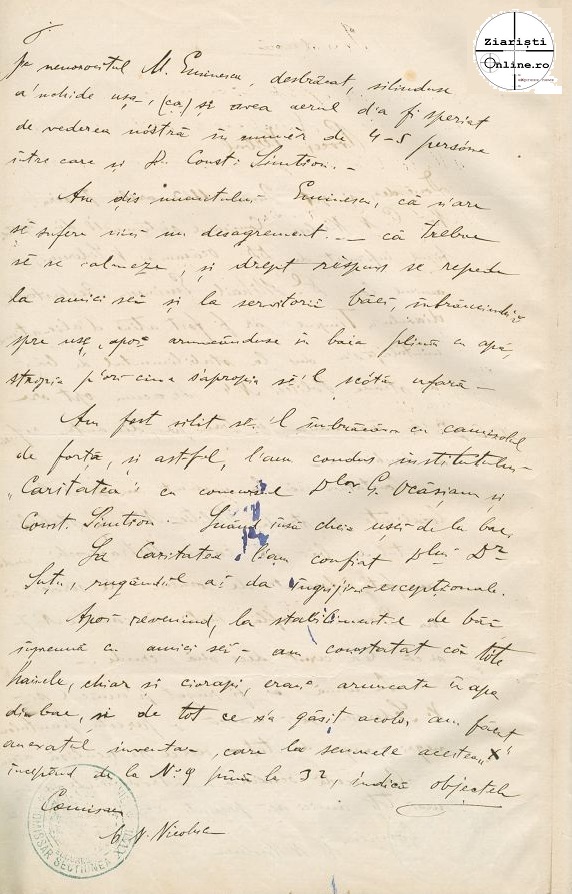 Ziariști
Online.ro
pe nenorocitul M. Eminescu, desbrăcat, silinduse
a 'nchide ușa, (ca) și avea aerul d'a fi speriat
de vederea nóstră în numĕr de 4-5 persóne
între care și D. Const. Simtion. -
Am dis Eminescu, că n'are
să sufere nici un desagrement. — că trebue
să se calmeze, și drept rĕspuns se repede
la amici sĕi și la servitorii băiei, îmbrâncindu-i
spre ușe, apoi aruncânduse în baia plină cu apă,
stropia p'ori-cine s'apropia să 'l scótă afară -
Am fost silit să 'l îmbrăcăm cu camisolul
de forță, și ast-fel, l'am condus institutului
"Caritatea" cu concursul Dlor G. Ocășianu și
Const. Simtion. Luând însă cheia ușei de la bae.
La Caritatea l'am confiat Dlui Dr
Șuțu, rugându-l a-i da îngrijiri escepționale.
Apoi revenind, la stabilimentul de băi
împreună cu amici sĕi, am constatat că tóte
hainele, chiar și ciorapii, erau aruncate în apa
din bae, și de tot ce s'a găsit acolo, am făcut
anecsatul inventar, care la semnele acestea "X"
începênd de la No 9 pînă la 32, indică objectele
Comisar
C. N. Nicolescu